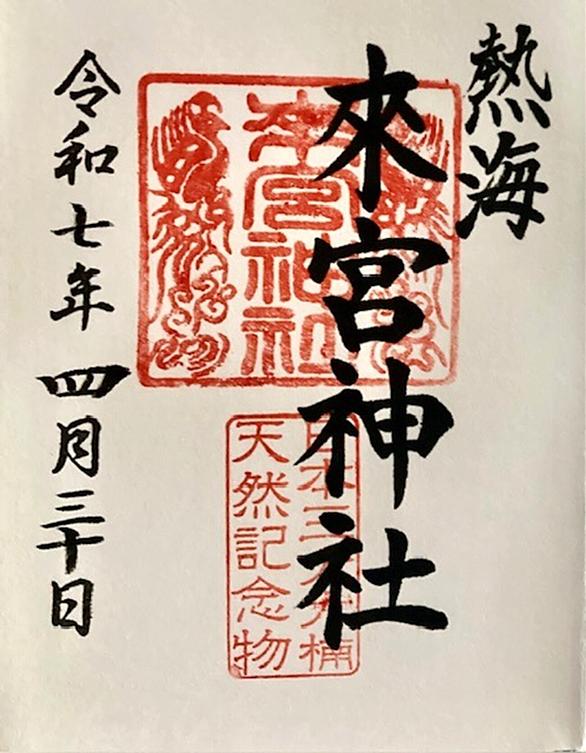 熱海
來宮神社
來宮神社
天然記念物
令和七年四月三十日